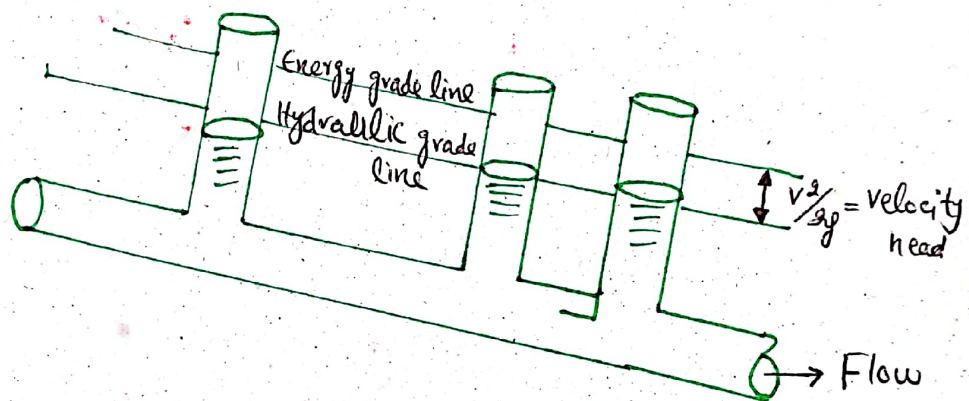 Energy grade line
Hydraulic grade
line
V²/2g = velocity
head
Flow